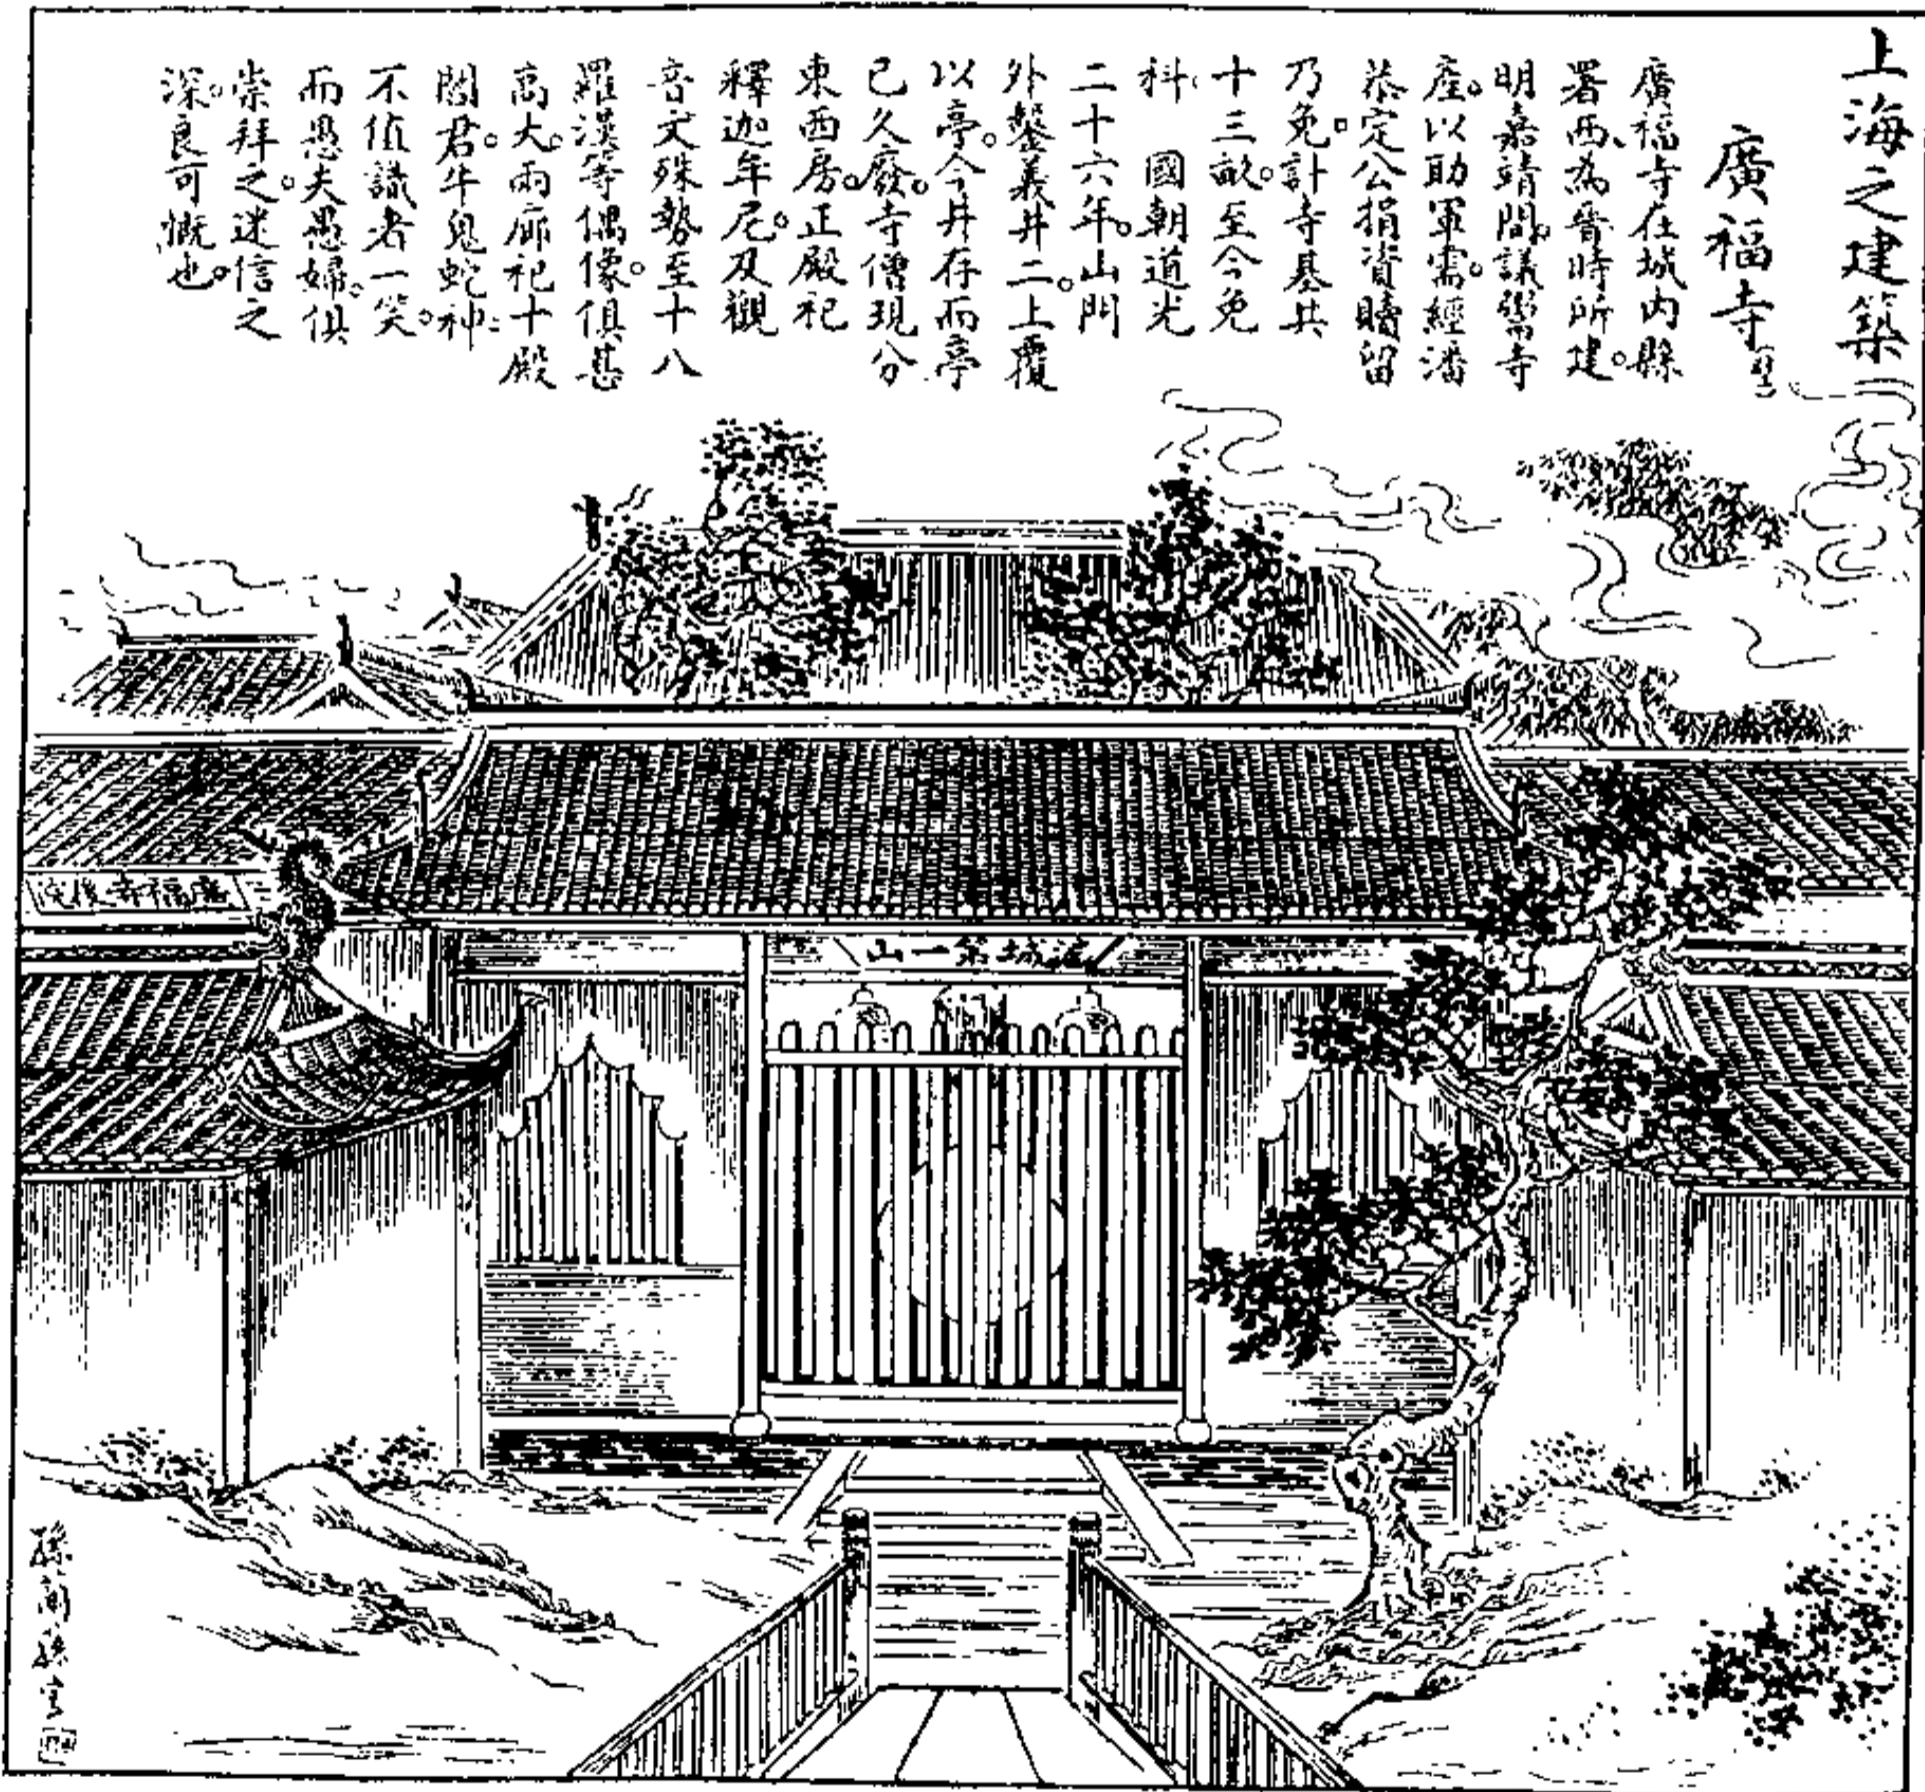 上海之建築
廣福寺
廣福寺在城內縣
署西、為晉時所建。
明嘉靖間、議鬻寺
產。以助軍需。經潘
恭定公捐資贖留
乃免。計寺基共
十三畝。至今免
科 國朝道光
二十六年。山門
外鑿義井二。上覆
以亭。今井存而亭
已久廢。寺僧現分
東西房。正殿祀
釋迦牟尼。及觀
音文殊勢至十八
羅漢等偶像。俱甚
高大。兩廊祀十殿
閻君。牛鬼蛇神
不值識者一笑。
而愚夫愚婦。俱
崇拜之。迷信之
深。良可慨也。
廣福寺後院
海城第一山